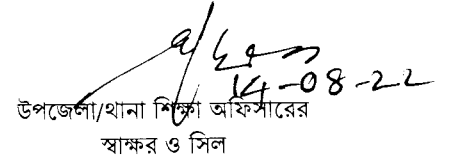 14-08-22
উপজেলা/থানা শিক্ষা অফিসারের
স্বাক্ষর ও সিল